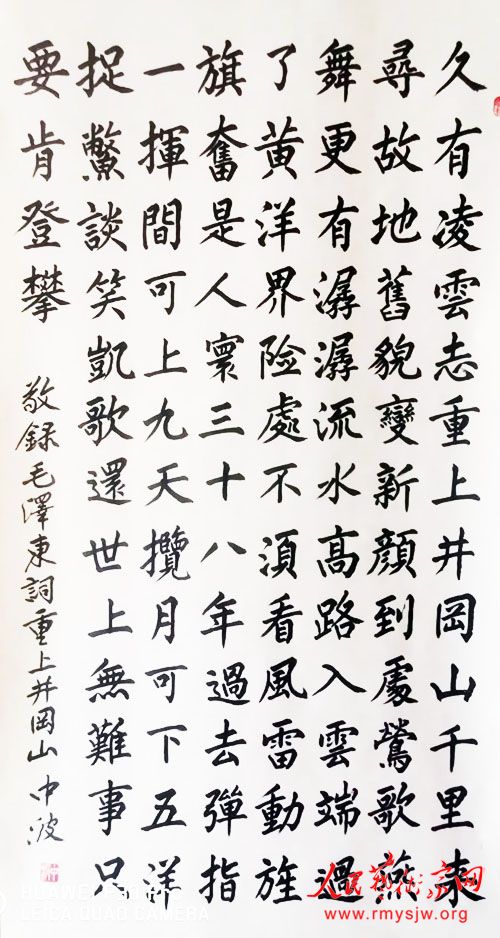 久有凌雲志重上井岡山千里來
尋故地舊貌變新顏到處鶯歌燕
舞更有潺潺流水高路入雲端過
了黄洋界险處不須看風雷動旌
旗奮是人寰三十八年過去彈指
一揮間可上九天攬月可下五洋
捉鱉談笑凱歌還世上無難事只
要肯登攀
敬録毛澤東詞重上井岡山 中波
人民藝術家网
www.rmysjw.org
HUAWEI
LEICA QUAD CAMERA